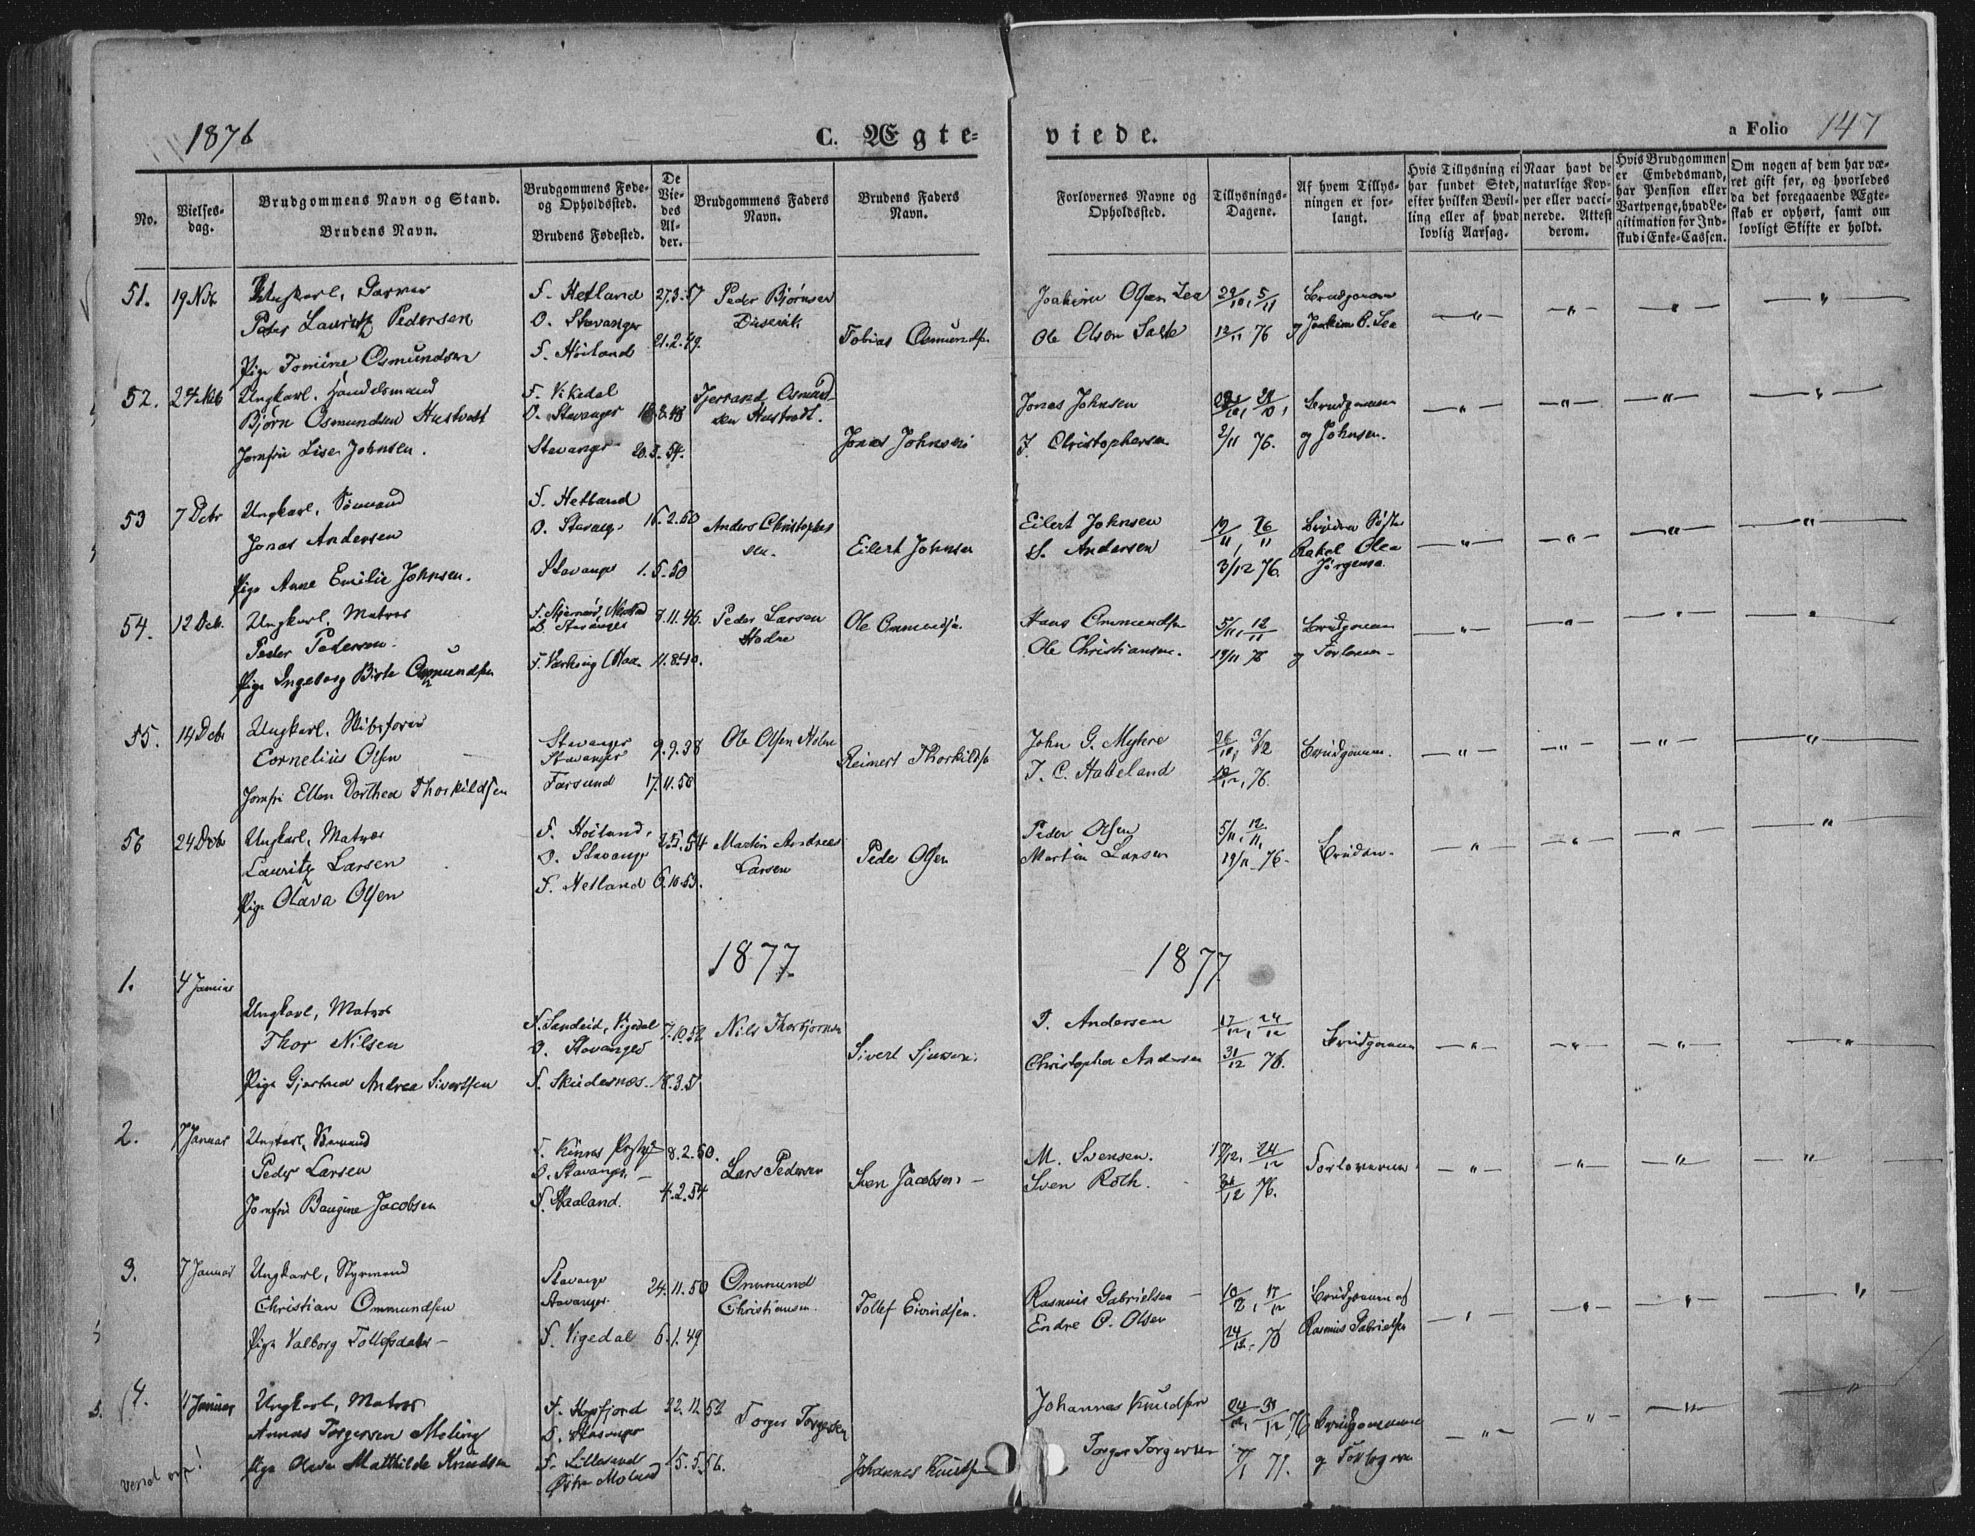 1876
C. Ægte-
viede.
a Folio 147
No.
Vielses-
dag.
Brudgommens Navn og Stand.
Brudens Navn.
Brudgommens Føde-
og Opholdssted.
Brudens Fødested.
De
Vie-
des
Al-
der.
Brudgommens Faders
Navn.
Brudens Faders
Navn.
Forlovernes Navne og
Opholdssted.
Tillysnings-
Dagene.
Af hvem Tillys-
ningen er for-
langt.
Hvis Tillysning ei
har fundet Sted,
efter hvilken Bevil-
ling eller af hvad
lovlig Aarsag.
Naar havt de
naturlige Kop-
per eller vacci-
nerede. Attest
derom.
Hvis Brudgommen
er Embedsmand,
har Pension eller
Vartpenge, hvad Le-
gitimation for Ind-
skud i Enke-Cassen.
Om nogen af dem har væ-
ret gift før, og hvorledes
da det foregaaende Ægte-
skab er ophørt, samt om
lovligt Skifte er holdt.
51. 19 Nov
Ungkarl, Garver
Peder Lauritz Pedersen
Pige Tomine Osmundsen
F. Hetland
O. Stavanger
F. Höiland
27.3.57
21.2.49.
Peder Bjørnsen
Tobias Osmundsen
Joakim Olsen Lea
Ole Olsen Salte
29/10, 5/11
12/11 76
Brudgommen
og Joakim O. Lea
52. 24 Nov
Ungkarl, Handelsmand
Bjørn Osmundsen Hustvedt
Jomfru Lise Johnsen.
F. Vikedal
O. Stavanger
Stavanger
20.3.54.
Tjerrand Osmund-
sen Hustvedt.
Jonas Johnsen
Jonas Johnsen
T. Christophersen
2/11 76.
Brudgommen
og Johnsen.
53 7 Decbr
Ungkarl, Sømand
Jonas Andersen
Pige Anne Emilie Johnsen.
F. Hetland
O. Stavanger
Stavanger
16.2.50
1.5.50
Anders Christophers
sen.
Eilert Johnsen
Eilert Johnsen
S. Andersen
19/11, 26/11
3/12 76.
Brudens Søster
Rakel Olea
Jørgensen
54. 12 Decb.
Ungkarl, Matros
Peder Pedersen.
Pige Ingeborg Birte Osmundsen
O. Stavanger
8.11.46.
11.8.40.
Peder Larsen
Hodne
Ole Ommundsen
Hans Ommundsen
Ole Christiansen.
5/11, 12/11
19/11 76
Brudgommen
og Forlover-
55. 14 Decbr
Ungkarl, Skibsfører
Cornelius Olsen
Jomfru Ellen Dorthea Thorkildsen
Stavanger
Stavanger
Farsund
9.9.38
17.11.50
Ole Olsen Holne
Reinert Thorkildsen
John G. Myhre
T. C. Hatteland
26/11, 3/12
10/12, 76.
Brudgommen.
56 24 Decbr
Ungkarl, Matros
Lauritz Larsen
Pige Olava Olsen
F. Höiland,
O. Stavanger
F. Hetland
25.5.54
6.10.53.
Martin Andreas
Larsen
Peder Olsen
Peder Olsen
Martin Larsen
5/11, 12/11,
19/11 76.
Bruden.
1877
1877
1. 4 Januar
Ungkarl, Matros
Thor Nilsen
Pige Gjertrud Andrea Sivertsen
F. Sandeid, Vigedal
O. Stavanger
F. Skudesnæs.
7.10.52
18.3.51
Nils Thorbjørnsen
Sivert Sjursen.
T. Andersen
Christopher Andersen
17/12, 24/12
31/12 76.
Brudgommen
2. 7 Januar
Ungkarl, Sømand
Peder Larsen
Jomfru Baugine Jacobsen
F. Kinns Prstgd
O. Stavanger.
F. Haaland.
8.2.50.
4.2.54
Lars Pedersen
Sven Jacobsen
M. Svensen.
Sven Roth.
17/12, 24/12
31/12 76.
Forloverne
3. 7 Januar
Ungkarl, Styrmand
Christian Ommundsen
Pige Valborg Tollefsdatter
Stavanger
Stavanger
F. Vigedal
24.11.50
6.1.49
Ommund
Christiansen.
Tollef Eivindsen.
Rasmus Gabrielsen
Endre O. Olsen
10/12, 17/12
24/12. 76
Brudgommen og
Rasmus Gabrielsen
4. 11 Januar
Ungkarl, Matros
Annas Torgersen Meling
Pige Olava Matthilde Knudsen
F. Kopfjord
O. Stavanger
F. Lillesand
Østre Moland
22.11.52
15.5.56.
Torger Torgersen
Johannes Knudsen
Johannes Knudsen
Torger Torgersen
24/12, 31/12 76
7/1 77.
Brudgommen
og Forloveren
vend om!